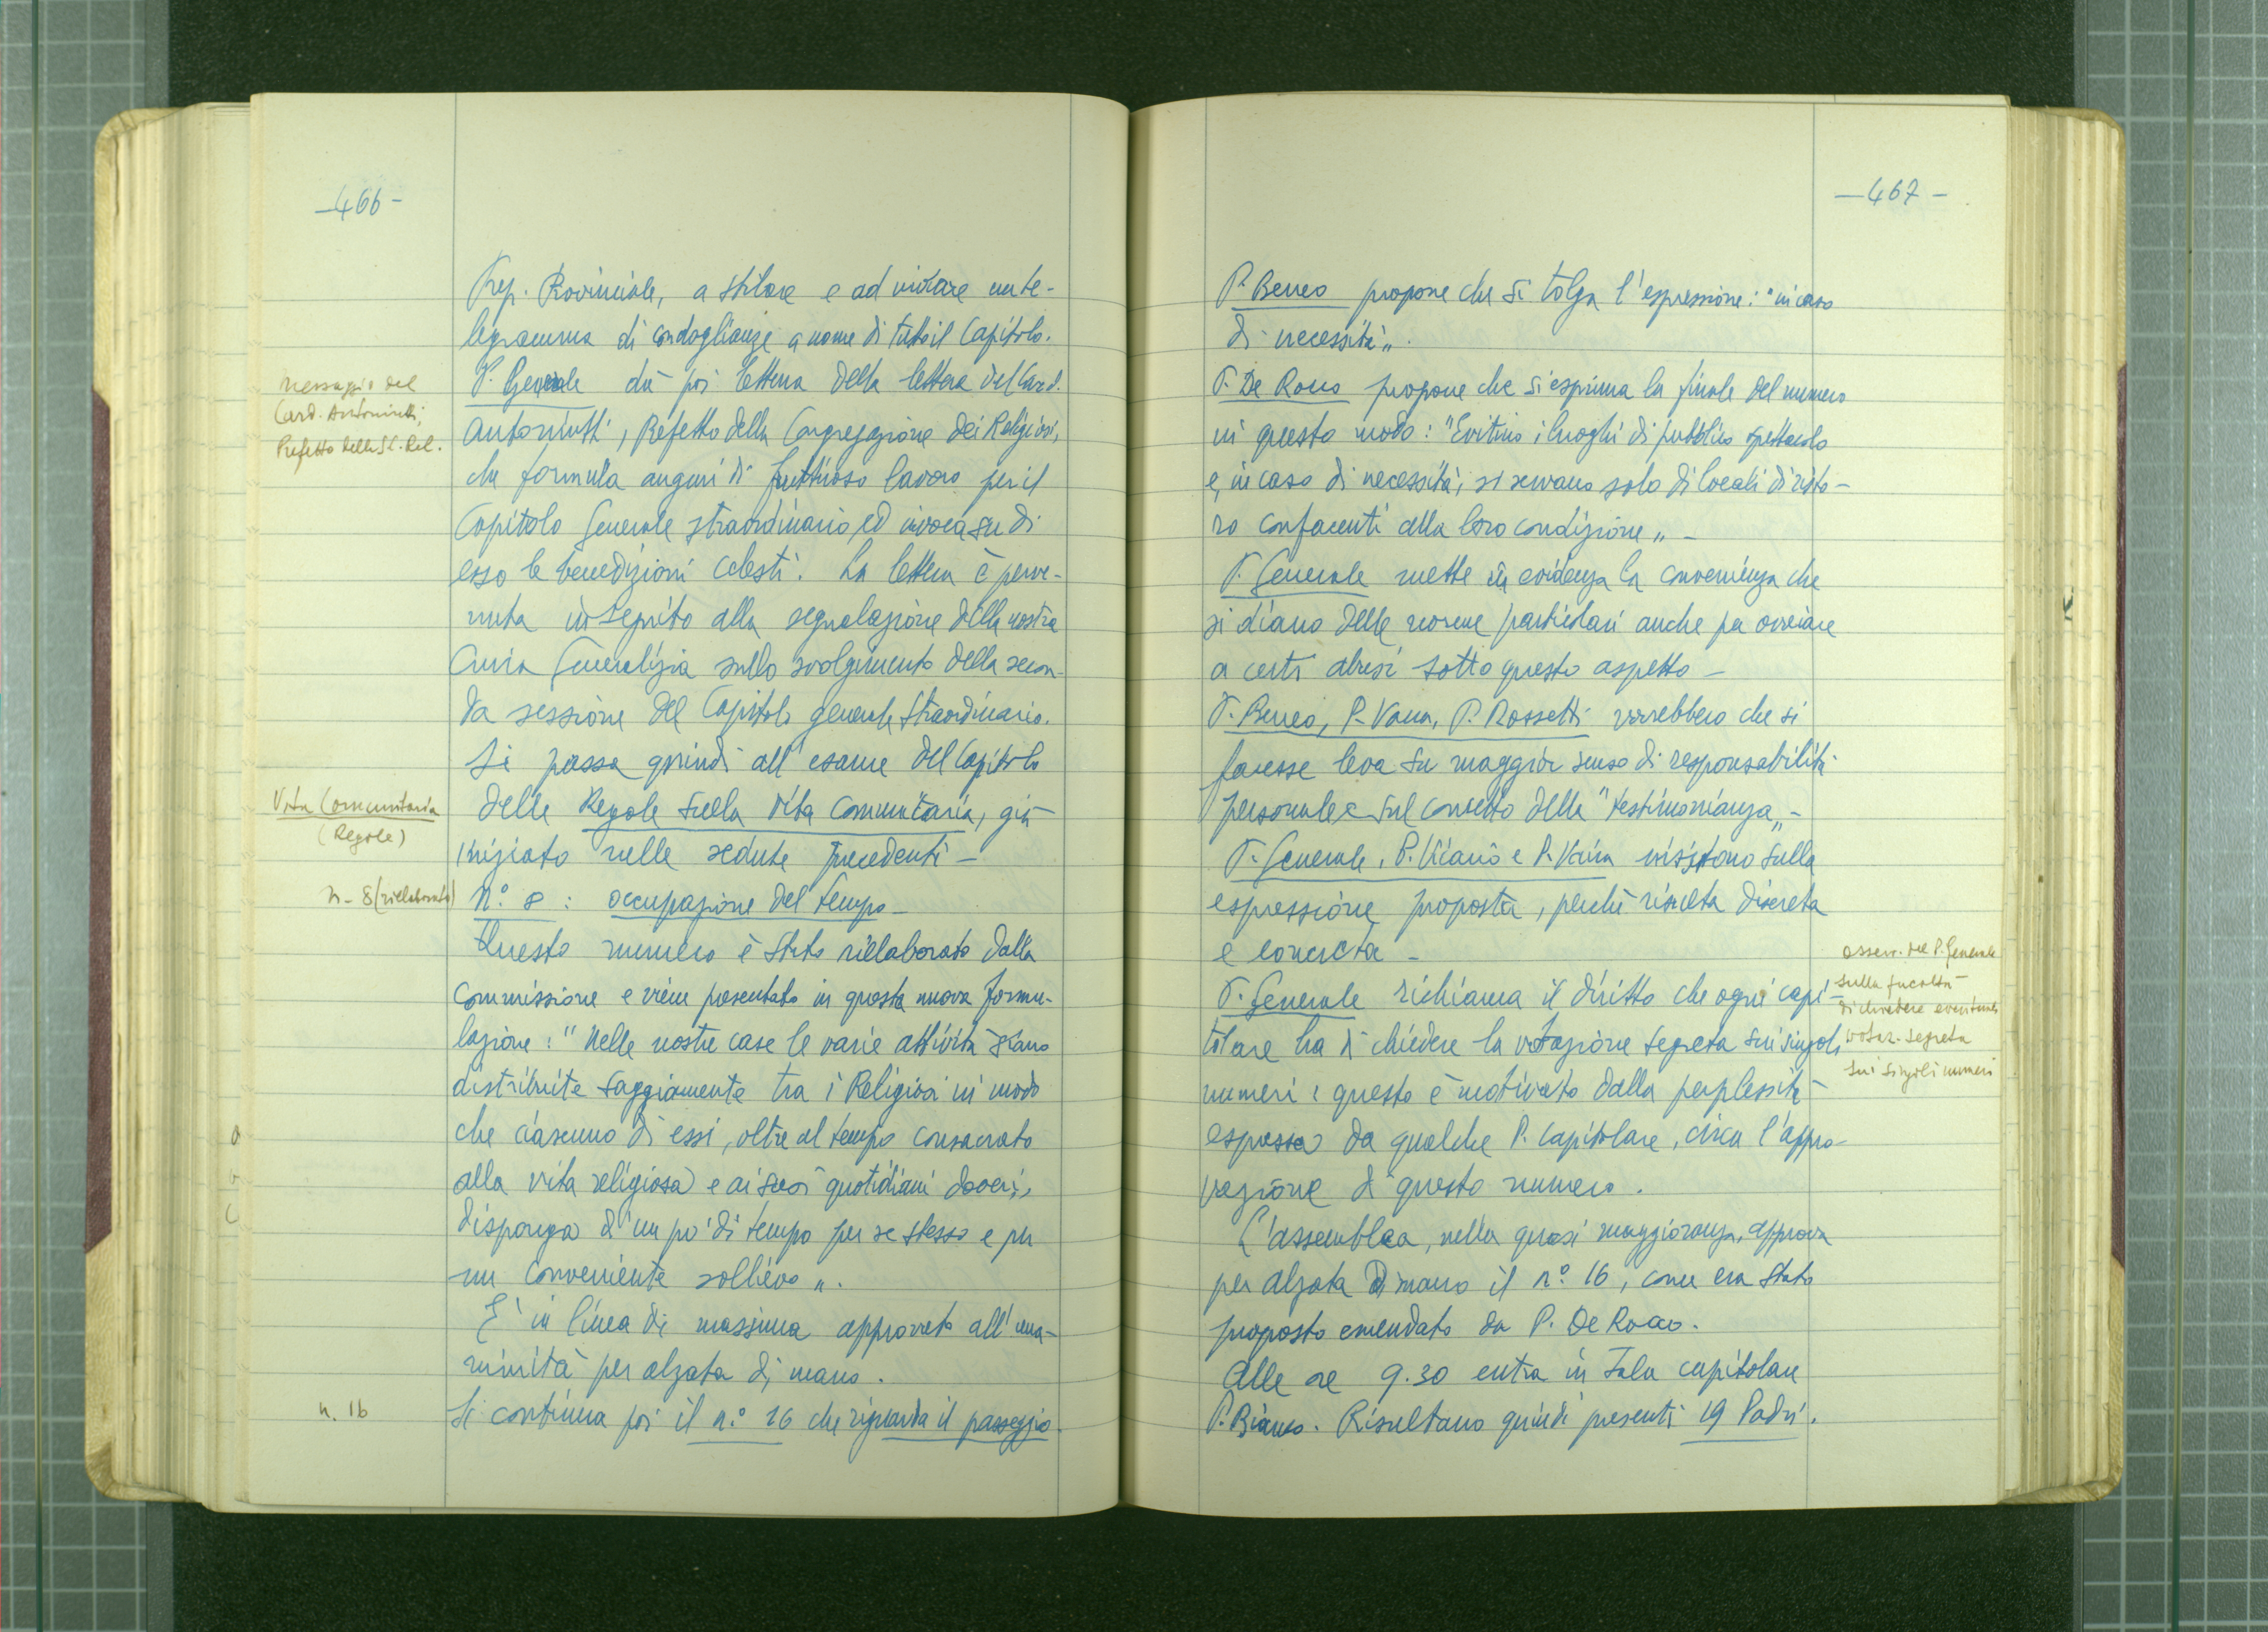 -466-
Prep. Provinciale, a stilare e ad inviare un te-
legramma di condoglianze a nome di tutto il Capitolo.
Messaggio del
Card. Antoniutti,
Prefetto della S.C. Rel.
P. Generale dà poi lettura della lettera del Card.
Antoniutti, Prefetto della Congregazione dei Religiosi,
che formula auguri di fruttuoso lavoro per il
Capitolo Generale straordinario, ed invoca su di
esso le benedizioni celesti. La lettera è perve-
nuta in seguito alla segnalazione della nostra
Curia Generalizia sullo svolgimento della secon-
da sessione del Capitolo generale straordinario.
Si passa quindi all'esame del Capitolo
Vita Comunitaria
(Regole)
delle Regole sulla vita comunitaria, già
iniziato nelle sedute precedenti -
n. 8 (rielaborato)
n.° 8 : occupazione del tempo -
Questo numero è stato rielaborato dalla
commissione e viene presentato in questa nuova formu-
lazione: "Nelle nostre case le varie attività siano
distribuite saggiamente tra i Religiosi in modo
che ciascuno di essi, oltre al tempo consacrato
alla vita religiosa e ai suoi quotidiani doveri,
disponga d'un po' di tempo per se stesso e per
un conveniente sollievo".
E' in linea di massima approvato all'una-
nimità per alzata di mano.
n. 16
Si continua poi il n.° 16 che riguarda il passeggio.
-467-
P. Berreo propone che si tolga l'espressione: "in caso
di necessità".
P. De Rocco propone che si esprima la finale del numero
in questo modo: "Evitino i luoghi di pubblico spettacolo
e, in caso di necessità, si servano solo di locali di risto-
ro confacenti alla loro condizione" -
P. Generale mette in evidenza la convenienza che
si diano delle norme particolari anche per ovviare
a certi abusi sotto questo aspetto -
P. Berreo, P. Vaira, P. Rossetti vorrebbero che si
facesse leva su maggior senso di responsabilità
personale e sul concetto della "testimonianza" -
P. Generale, P. Viario e P. Vaira insistono sulla
espressione proposta, perché risulta discreta
e concreta -
osserv. del P. Generale
sulla facoltà
di chiedere eventuale
votaz. segreta
sui singoli numeri
P. Generale richiama il diritto che ogni capi-
tolare ha di chiedere la votazione segreta sui singoli
numeri: questo è motivato dalla perplessità
espressa da qualche P. Capitolare, circa l'appro-
vazione di questo numero.
L'assemblea, nella quasi maggioranza, approva
per alzata di mano il n.° 16, come era stato
proposto emendato da P. De Rocco.
Alle ore 9.30 entra in Sala capitolare
P. Bianco. Risultano quindi presenti 19 Padri.